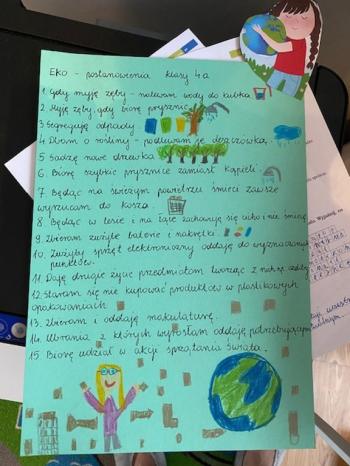 EKO - postanowienia klasy 4a
1. Gdy myję zęby - nalewam wody do kubka
2. Myję zęby, gdy biorę prysznic
3. Segreguję odpady
4. Dbam o rośliny - podlewam je deszczówką.
5. Sadzę nowe drzewka
6. Biorę szybkie prysznice zamiast kąpieli.
7. Będąc na świeżym powietrzu śmieci zawsze
wyrzucam do kosza.
8. Będąc w lesie i na łące zachowuję się cicho i nie śmiecę
9. Zbieram zużyte baterie i nakrętki.
10. Zużyty sprzęt elektroniczny oddaję do wyznaczonych
punktów.
11. Daję drugie życie przedmiotom tworząc z nich np. ozdoby
12. Staram się nie kupować produktów w plastikowych
opakowaniach
13. Zbieram i oddaję makulaturę.
14. Ubrania z których wyrosłam oddaję potrzebującym
15. Biorę udział w akcji sprzątania świata.